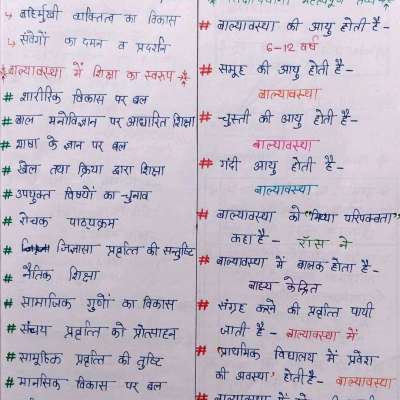 ↳ बहिर्मुखी व्यक्तित्व का विकास
↳ संवेगों का दमन व प्रदर्शन
बाल्यावस्था में शिक्षा का स्वरूप
# शारीरिक विकास पर बल
# बाल मनोविज्ञान पर आधारित शिक्षा
# भाषा के ज्ञान पर बल
# खेल तथा क्रिया द्वारा शिक्षा
# उपयुक्त विषयों का चुनाव
# रोचक पाठ्यक्रम
# जिज्ञासा प्रवृत्ति की सन्तुष्टि
# नैतिक शिक्षा
# सामाजिक गुणों का विकास
# संचय प्रवृत्ति को प्रोत्साहन
# सामूहिक प्रवृत्ति की तुष्टि
# मानसिक विकास पर बल
# बाल्यावस्था की आयु होती है -
6-12 वर्ष
# समूह की आयु होती है -
बाल्यावस्था
# चुस्ती की आयु होती है -
बाल्यावस्था
# गंदी आयु होती है -
बाल्यावस्था
# बाल्यावस्था को "मिथ्या परिपक्वता"
कहा है - रॉस ने
# बाल्यावस्था में बालक होता है -
बाह्य केन्द्रित
# संग्रह करने की प्रवृत्ति पायी
जाती है - बाल्यावस्था में
# "प्राथमिक विद्यालय में प्रवेश
की अवस्था" होती है - बाल्यावस्था